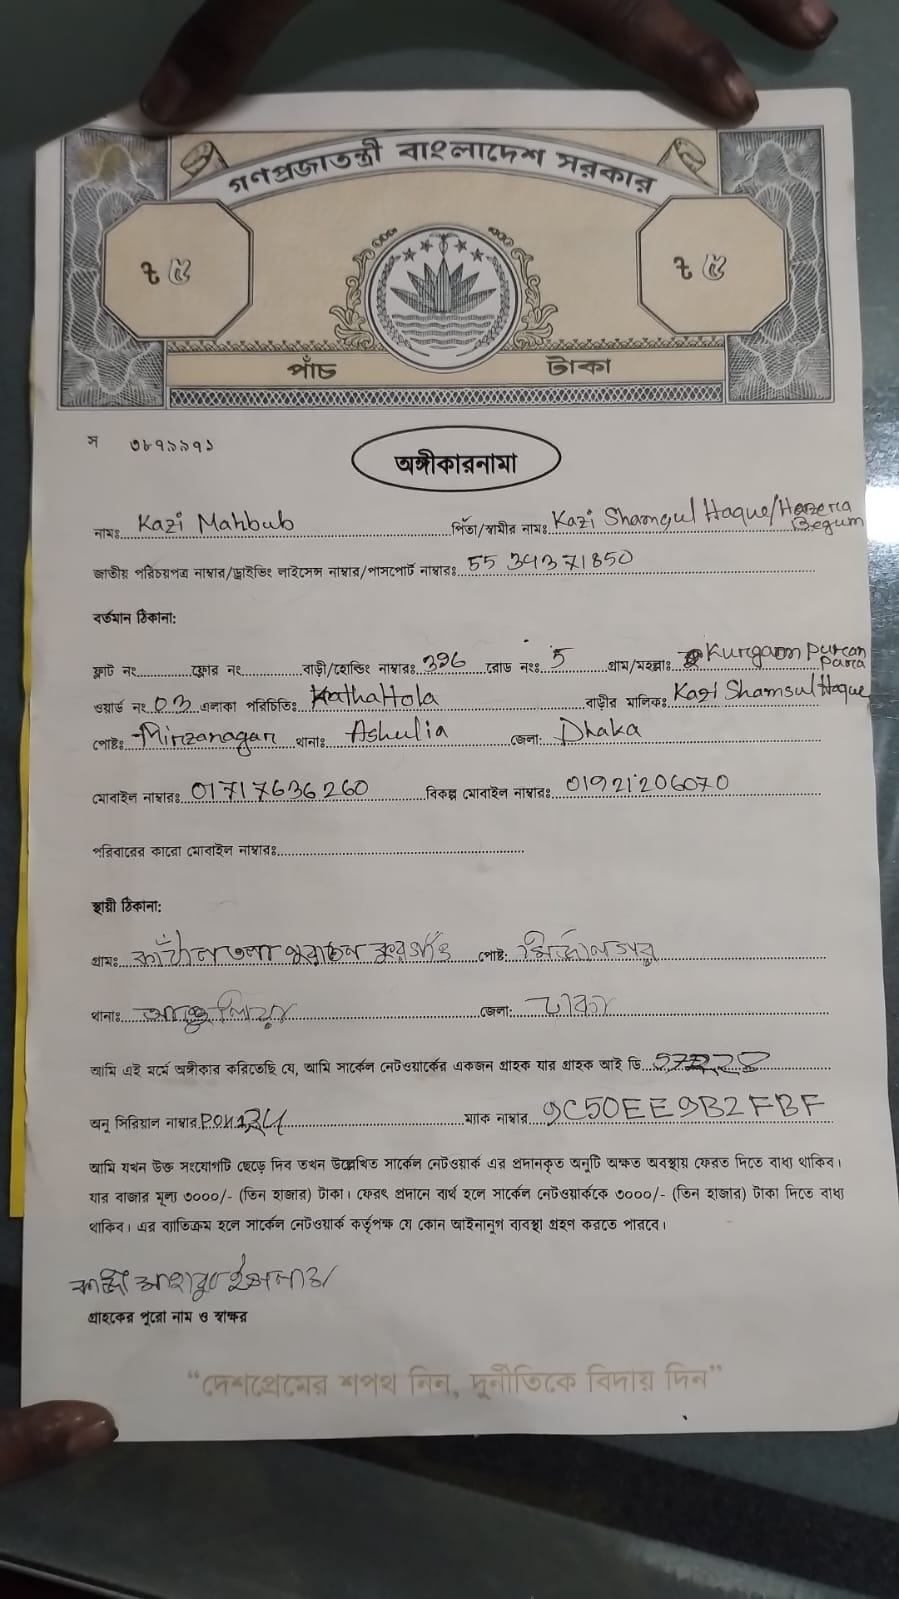 গণপ্রজাতন্ত্রী বাংলাদেশ সরকার
৳ ৫ ৳ ৫
পাঁচ টাকা
স ৩৮৭১৯৭১
অঙ্গীকারনামা
নামঃ Kazi Mahbub পিতা/স্বামীর নামঃ Kazi Shamsul Haque/Hazera Begum
জাতীয় পরিচয়পত্র নাম্বার/ড্রাইভিং লাইসেন্স নাম্বার/পাসপোর্ট নাম্বারঃ 55 34371850
বর্তমান ঠিকানা:
ফ্লাট নং ফ্লোর নং বাড়ী/হোল্ডিং নাম্বারঃ 396 রোড নংঃ 5 গ্রাম/মহল্লাঃ Kurgaon Puran Para
ওয়ার্ড নং 03 এলাকা পরিচিতিঃ Kathaltola বাড়ীর মালিকঃ Kazi Shamsul Haque
পোষ্টঃ Mirzanagar থানাঃ Ashulia জেলা: Dhaka
মোবাইল নাম্বারঃ 01717636260 বিকল্প মোবাইল নাম্বারঃ 01921206070
পরিবারের কারো মোবাইল নাম্বারঃ
স্থায়ী ঠিকানা:
গ্রামঃ কাঁঠালতলা পুরাতন কুরগাঁও পোষ্ট: মির্জানগর
থানাঃ আশুলিয়া জেলা: ঢাকা
আমি এই মর্মে অঙ্গীকার করিতেছি যে, আমি সার্কেল নেটওয়ার্কের একজন গ্রাহক যার গ্রাহক আই ডি
অনু সিরিয়াল নাম্বার ম্যাক নাম্বার 9C50EE9B2FBF
আমি যখন উক্ত সংযোগটি ছেড়ে দিব তখন উল্লেখিত সার্কেল নেটওয়ার্ক এর প্রদানকৃত অনুটি অক্ষত অবস্থায় ফেরত দিতে বাধ্য থাকিব।
যার বাজার মূল্য ৩০০০/- (তিন হাজার) টাকা। ফেরৎ প্রদানে ব্যর্থ হলে সার্কেল নেটওয়ার্ককে ৩০০০/- (তিন হাজার) টাকা দিতে বাধ্য
থাকিব। এর ব্যতিক্রম হলে সার্কেল নেটওয়ার্ক কর্তৃপক্ষ যে কোন আইনানুগ ব্যবস্থা গ্রহণ করতে পারবে।
কাজী মাহবুব ইসলাম
গ্রাহকের পুরো নাম ও স্বাক্ষর
“দেশপ্রেমের শপথ নিন, দুর্নীতিকে বিদায় দিন”